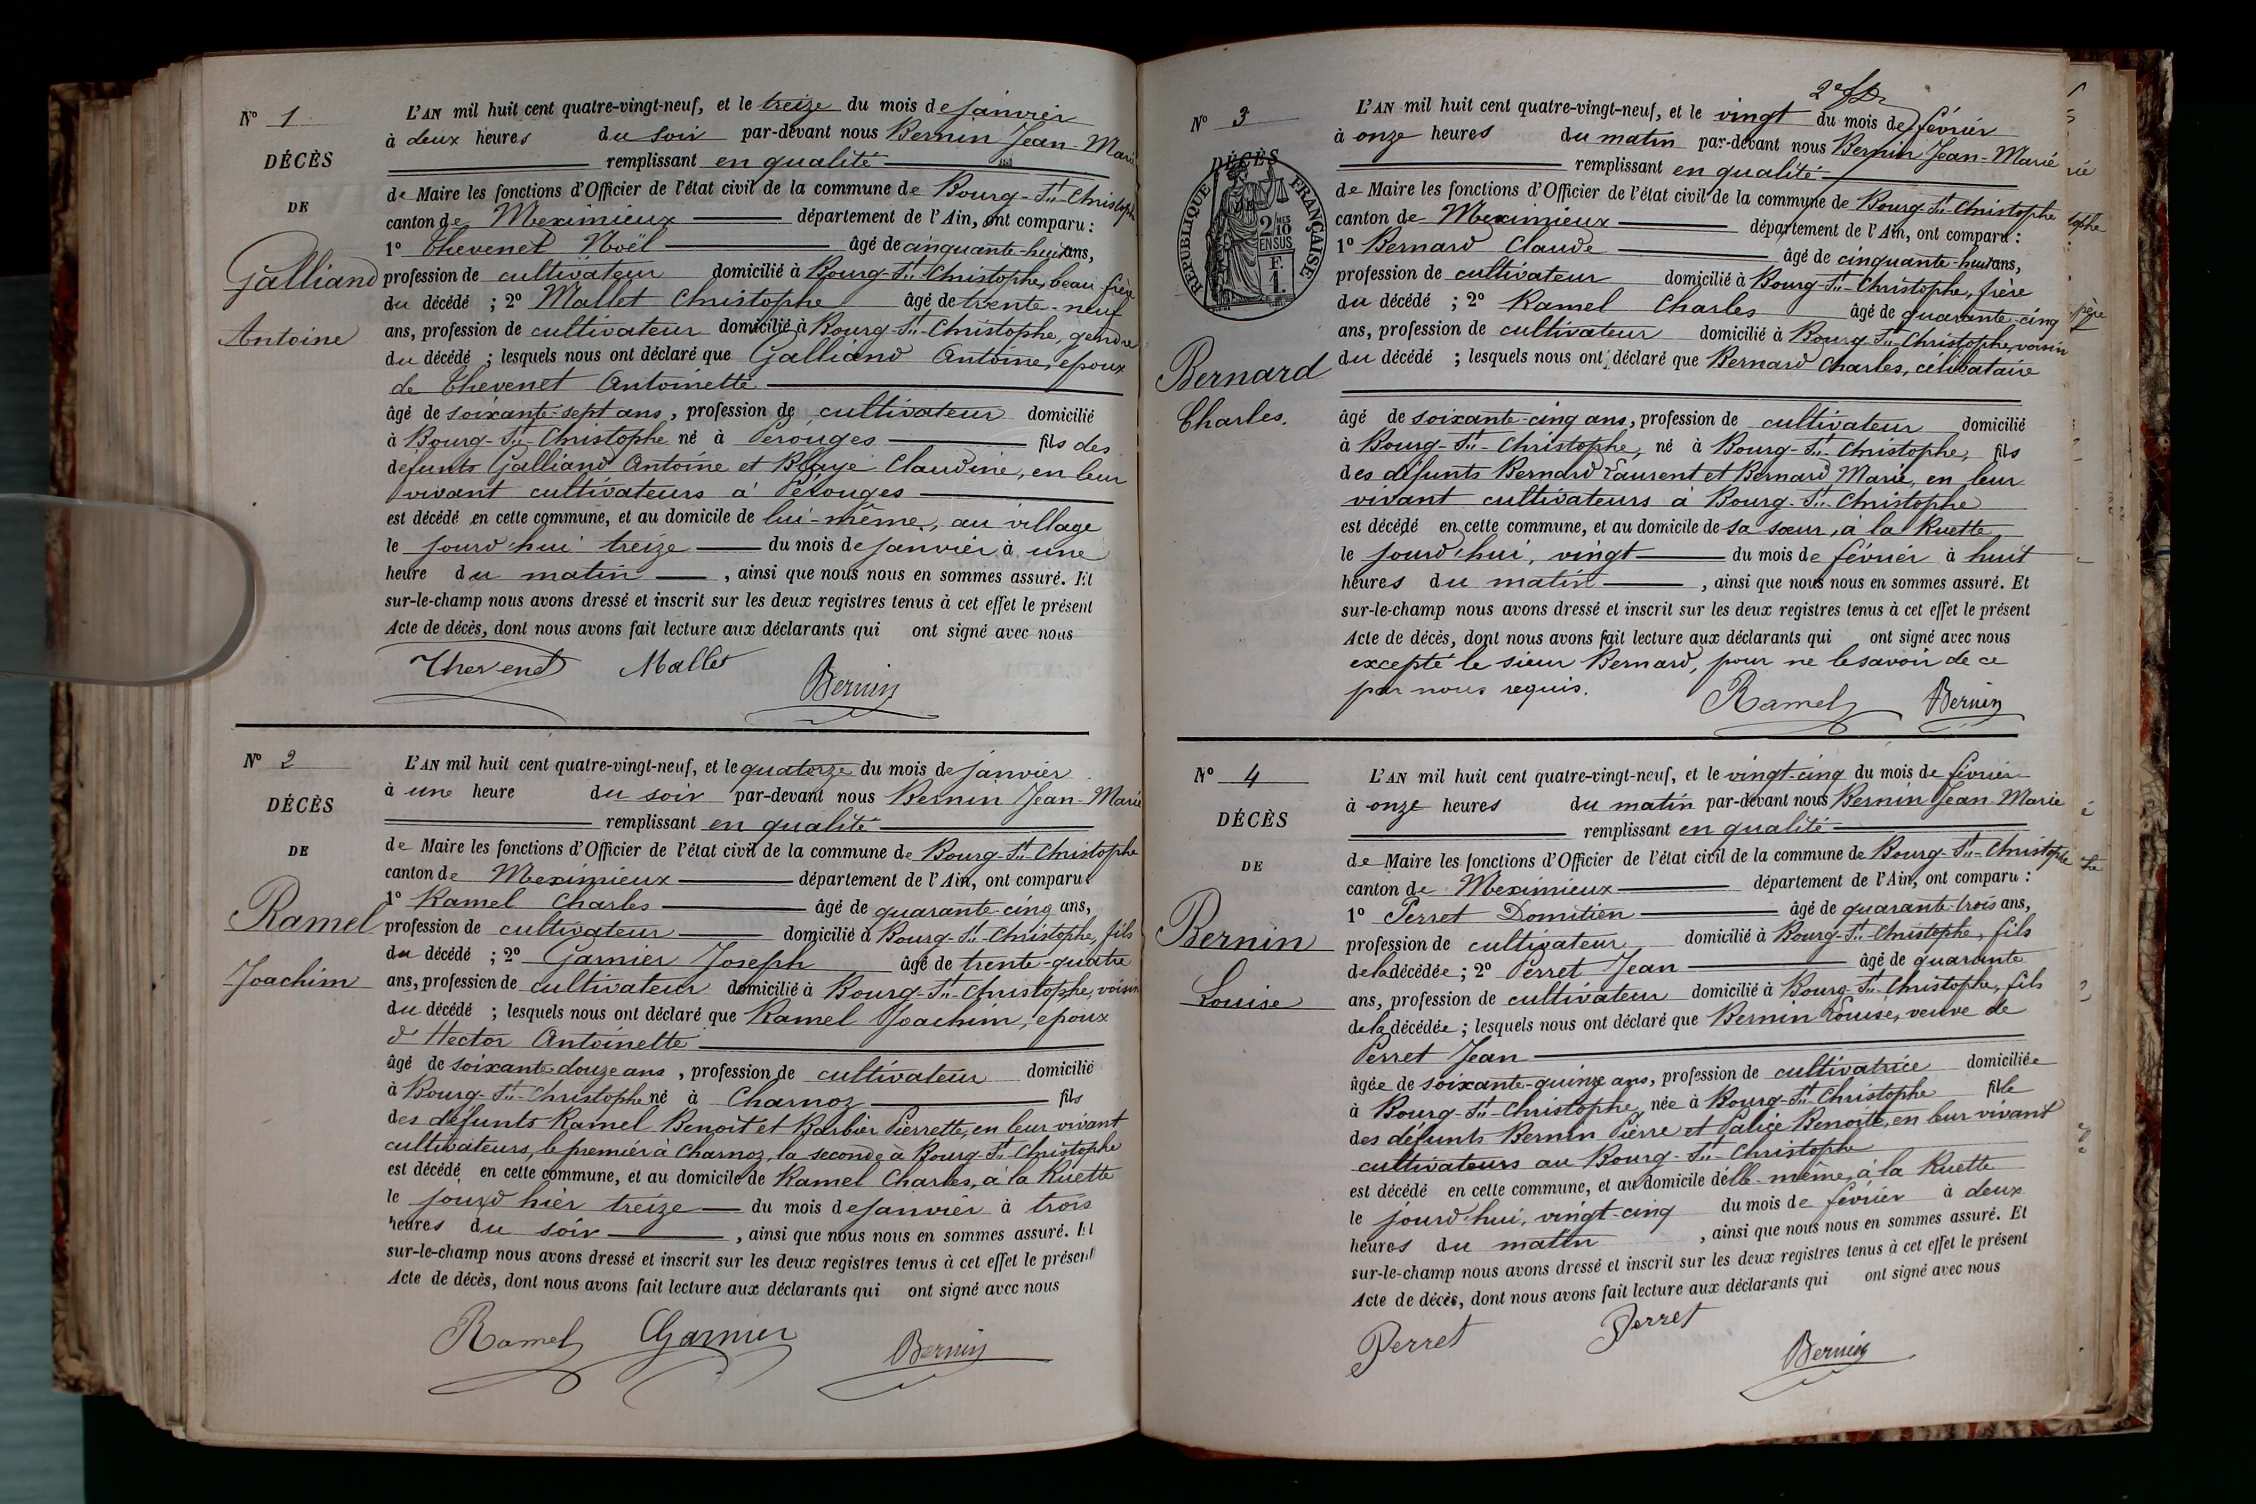 N° 1
DÉCÈS
DE
Galliand
Antoine
L'AN mil huit cent quatre-vingt-neuf, et le treize du mois de janvier
à deux heures du soir par-devant nous Bernin Jean-Marie
remplissant en qualité
de Maire les fonctions d'Officier de l'état civil de la commune de Bourg-St-Christophe
canton de Meximieux département de l'Ain, ont comparu :
1° Thevenet Noël âgé de cinquante-huit ans,
profession de cultivateur domicilié à Bourg-St-Christophe, beau-frère
du décédé ; 2° Mallet Christophe âgé de trente-neuf
ans, profession de cultivateur domicilié à Bourg-St-Christophe, gendre
du décédé ; lesquels nous ont déclaré que Galliand Antoine, époux
de Thevenet Antoinette
âgé de soixante-sept ans, profession de cultivateur domicilié
à Bourg-St-Christophe né à Pérouges fils des
défunts Galliand Antoine et Blaye Claudine, en leur
vivant cultivateurs à Pérouges
est décédé en cette commune, et au domicile de lui-même, au village
le jourd'hui treize du mois de janvier à une
heure du matin, ainsi que nous nous en sommes assuré. Et
sur-le-champ nous avons dressé et inscrit sur les deux registres tenus à cet effet le présent
Acte de décès, dont nous avons fait lecture aux déclarants qui ont signé avec nous
Thevenet Mallet Bernin
N° 2
DÉCÈS
DE
Ramel
Joachim
L'AN mil huit cent quatre-vingt-neuf, et le quatorze du mois de janvier
à une heure du soir par-devant nous Bernin Jean-Marie
remplissant en qualité
de Maire les fonctions d'Officier de l'état civil de la commune de Bourg-St-Christophe
canton de Meximieux département de l'Ain, ont comparu :
1° Ramel Charles âgé de quarante-cinq ans,
profession de cultivateur domicilié à Bourg-St-Christophe, fils
du décédé ; 2° Garnier Joseph âgé de trente-quatre
ans, profession de cultivateur domicilié à Bourg-St-Christophe, voisin
du décédé ; lesquels nous ont déclaré que Ramel Joachim, époux
d'Hector Antoinette
âgé de soixante-douze ans, profession de cultivateur domicilié
à Bourg-St-Christophe né à Charnoz fils
des défunts Ramel Benoît et Barbier Pierrette, en leur vivant
cultivateurs, le premier à Charnoz, la seconde à Bourg-St-Christophe
est décédé en cette commune, et au domicile de Ramel Charles, à la Ruette
le jourd'hier treize du mois de janvier à trois
heures du soir, ainsi que nous nous en sommes assuré. Et
sur-le-champ nous avons dressé et inscrit sur les deux registres tenus à cet effet le présent
Acte de décès, dont nous avons fait lecture aux déclarants qui ont signé avec nous
Ramel Garnier Bernin
N° 3
DÉCÈS
RÉPUBLIQUE FRANÇAISE
2/10 MES
EN SUS
F.
1.
Bernard
Charles.
L'AN mil huit cent quatre-vingt-neuf, et le vingt du mois de février
à onze heures du matin par-devant nous Bernin Jean-Marie
remplissant en qualité
de Maire les fonctions d'Officier de l'état civil de la commune de Bourg-St-Christophe
canton de Meximieux département de l'Ain, ont comparu :
1° Bernard Claude âgé de cinquante-huit ans,
profession de cultivateur domicilié à Bourg-St-Christophe, frère
du décédé ; 2° Ramel Charles âgé de quarante-cinq
ans, profession de cultivateur domicilié à Bourg-St-Christophe, voisin
du décédé ; lesquels nous ont déclaré que Bernard Charles, célibataire
âgé de soixante-cinq ans, profession de cultivateur domicilié
à Bourg-St-Christophe, né à Bourg-St-Christophe, fils
des défunts Bernard Laurent et Bernard Marie, en leur
vivant cultivateurs à Bourg-St-Christophe
est décédé en cette commune, et au domicile de sa sœur, à la Ruette
le jourd'hui, vingt du mois de février à huit
heures du matin, ainsi que nous nous en sommes assuré. Et
sur-le-champ nous avons dressé et inscrit sur les deux registres tenus à cet effet le présent
Acte de décès, dont nous avons fait lecture aux déclarants qui ont signé avec nous
excepté le sieur Bernard, pour ne le savoir de ce
par nous requis.
Ramel Bernin
N° 4
DÉCÈS
DE
Bernin
Louise
L'AN mil huit cent quatre-vingt-neuf, et le vingt-cinq du mois de février
à onze heures du matin par-devant nous Bernin Jean-Marie
remplissant en qualité
de Maire les fonctions d'Officier de l'état civil de la commune de Bourg-St-Christophe
canton de Meximieux département de l'Ain, ont comparu :
1° Perret Domitien âgé de quarante-trois ans,
profession de cultivateur domicilié à Bourg-St-Christophe, fils
de la décédée ; 2° Perret Jean âgé de quarante
ans, profession de cultivateur domicilié à Bourg-St-Christophe, fils
de la décédée ; lesquels nous ont déclaré que Bernin Louise, veuve de
Perret Jean
âgée de soixante-quinze ans, profession de cultivatrice domiciliée
à Bourg-St-Christophe, née à Bourg-St-Christophe fille
des défunts Bernin Pierre et Palice Benoîte, en leur vivant
cultivateurs au Bourg-St-Christophe
est décédé en cette commune, et au domicile d'elle-même, à la Ruette
le jourd'hui, vingt-cinq du mois de février à deux
heures du matin, ainsi que nous nous en sommes assuré. Et
sur-le-champ nous avons dressé et inscrit sur les deux registres tenus à cet effet le présent
Acte de décès, dont nous avons fait lecture aux déclarants qui ont signé avec nous
Perret Perret Bernin